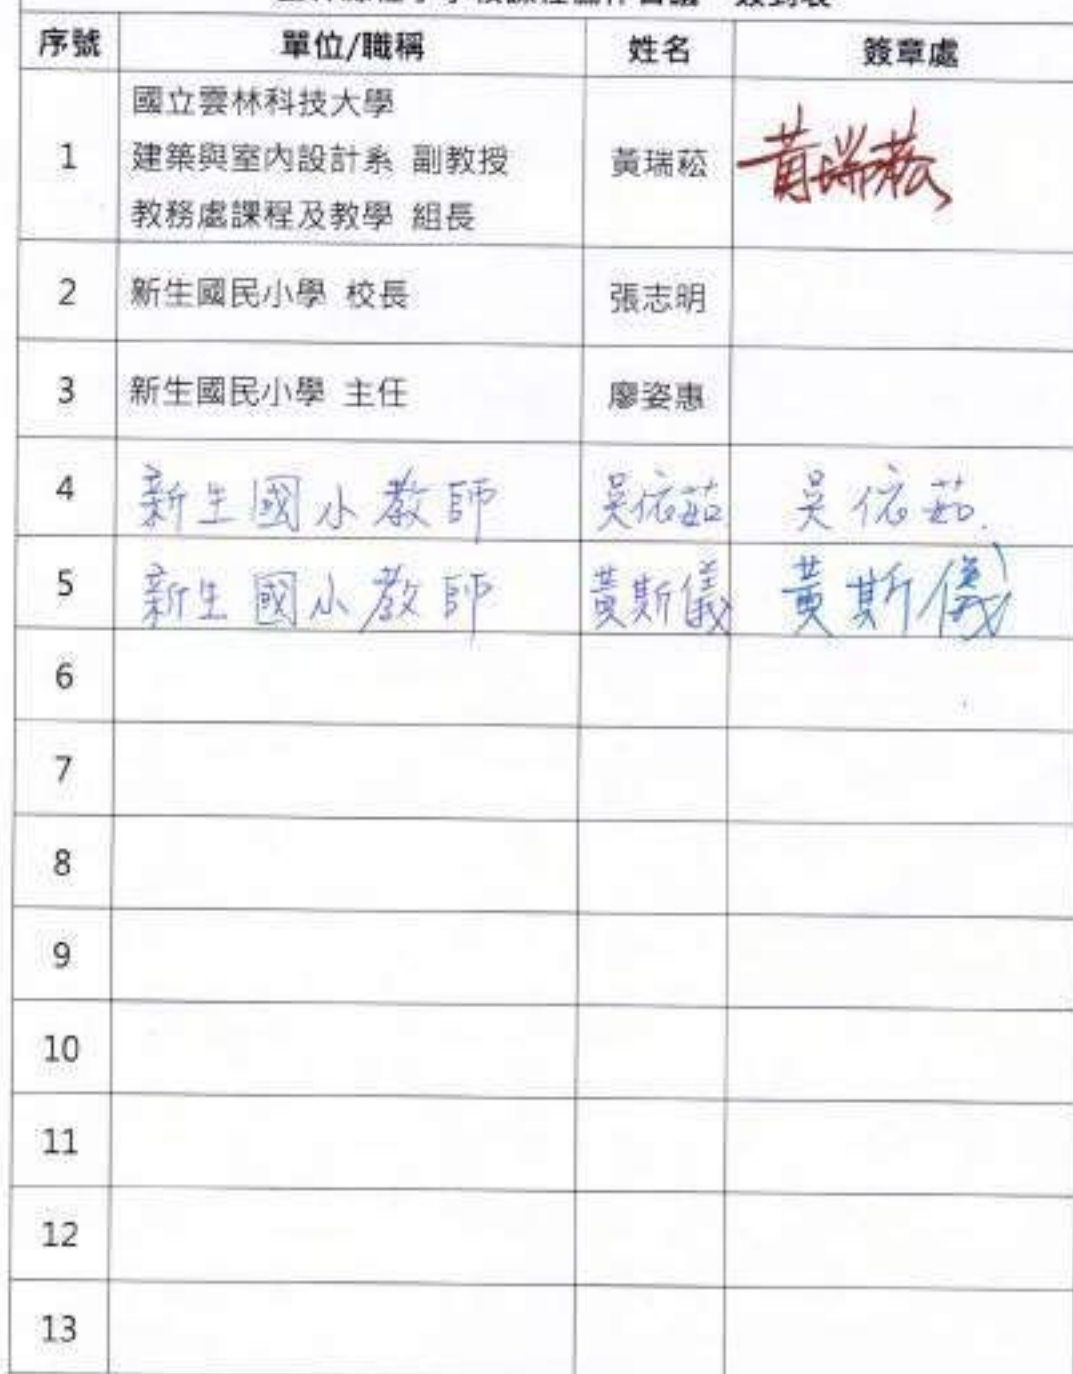 序號 單位/職稱 姓名 簽章處
國立雲林科技大學
1 建築與室內設計系 副教授 黃瑞菘 黃瑞菘
教務處課程及教學 組長
2 新生國民小學 校長 張志明
3 新生國民小學 主任 廖姿惠
4 新生國小教師 吳依茹 吳依茹
5 新生國小教師 黃斯儀 黃斯儀
6
7
8
9
10
11
12
13